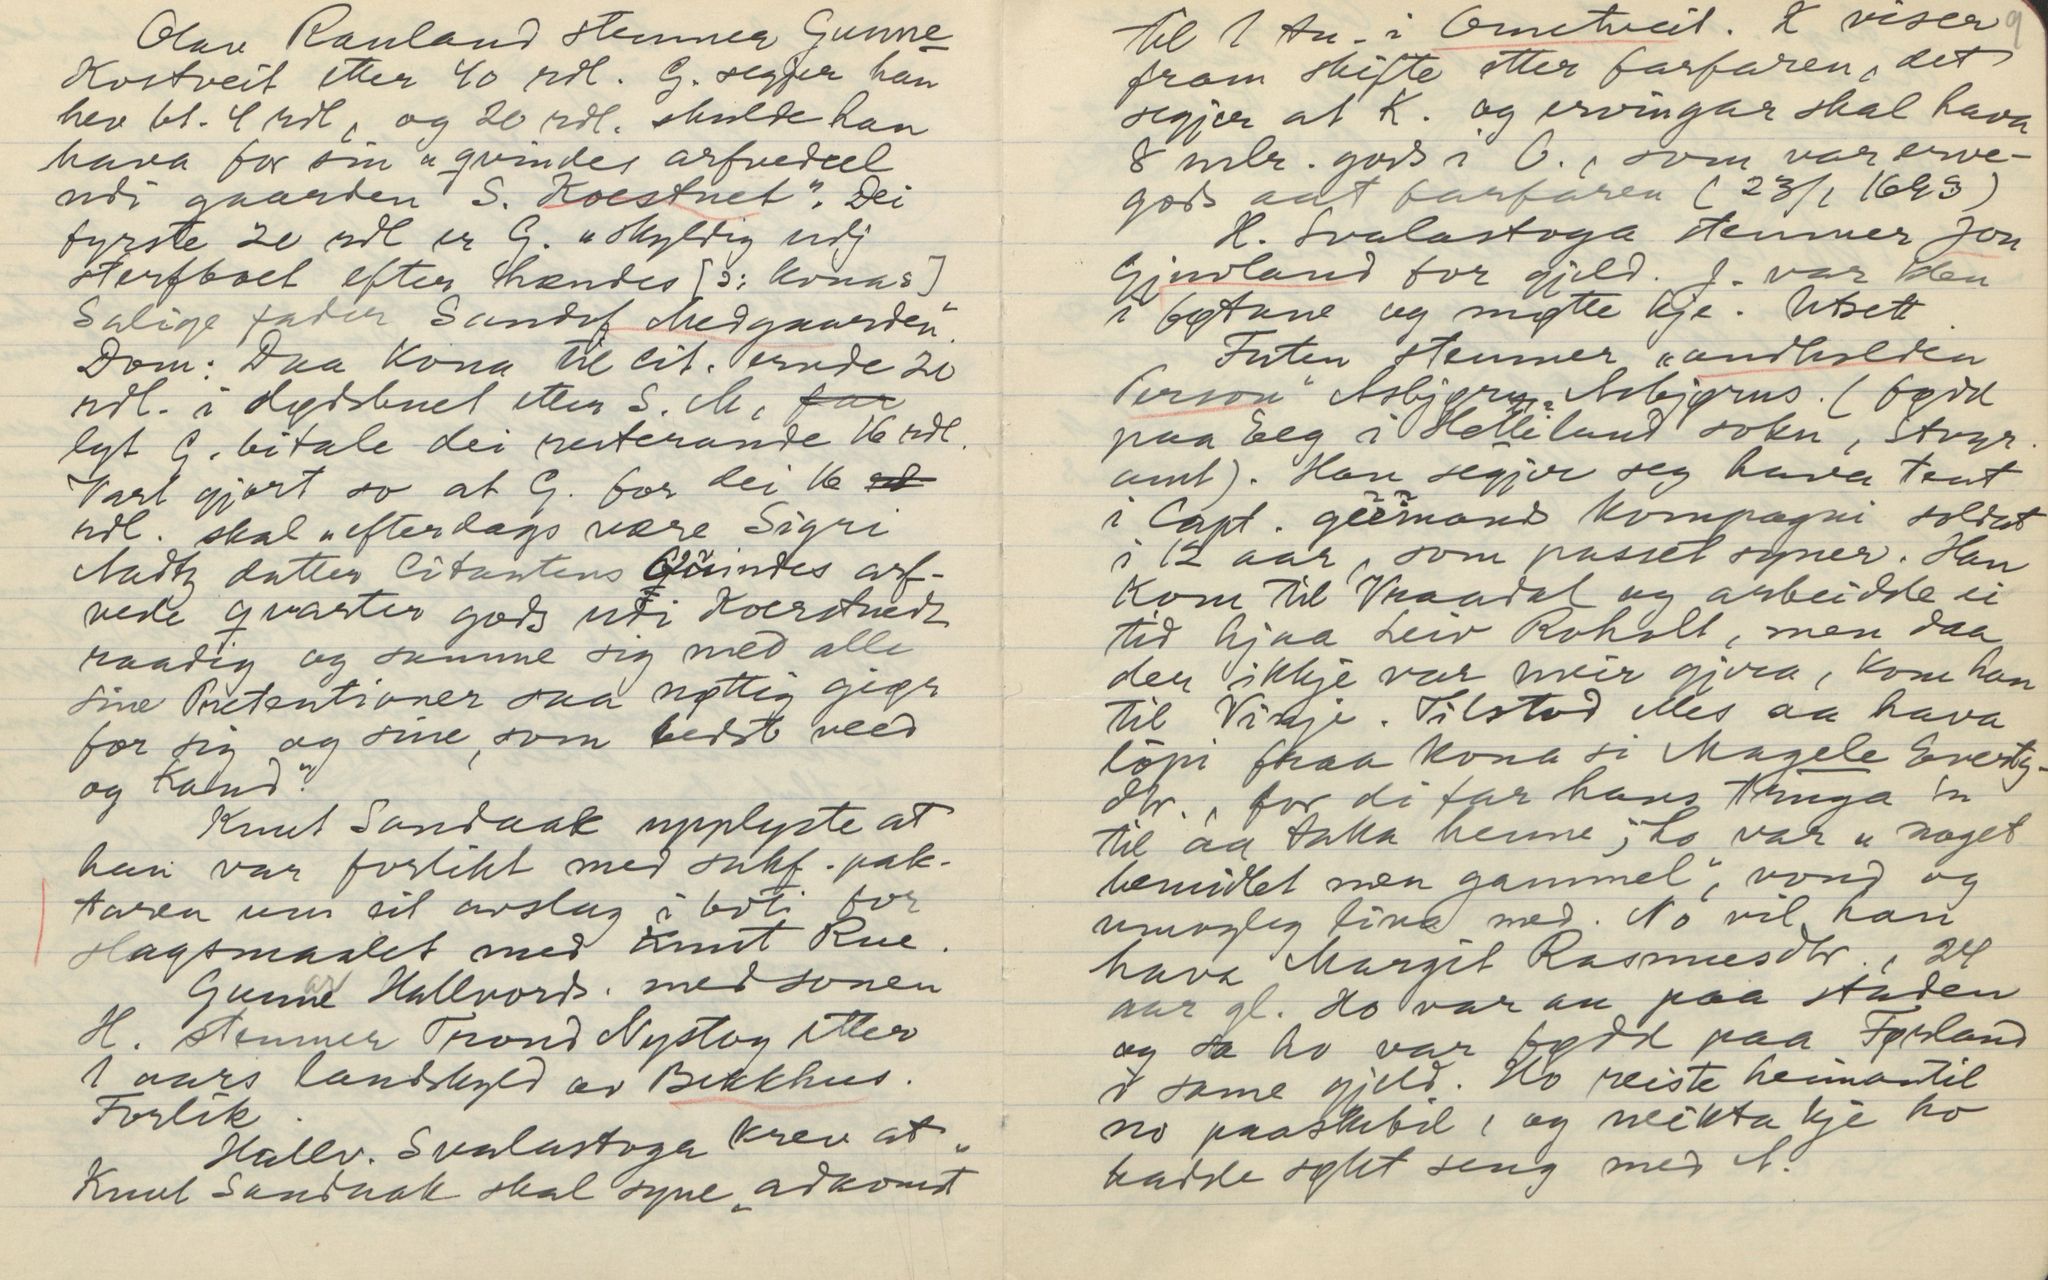 Olav Rauland stemner Gunne
Kostveit etter 40 rdl. G. segjer han
hev bt. 4 rdl, og 20 rdl. skulde han
hava for sin "qvindes arfvedeel
udi gaarden S. Koestuet". Dei
fyrste 20 rdl er G. "skyldig udj
sterfboet efter hændes [ɔ: konas]
Salige fader Sundf Medgaarden".
Dom: Daa kona til cit. ervde 20
rdl. i dødsbuet etter S. M, far
lyt G. bitale dei resterande 16 rdl.
Vart gjort so at G. for dei 16 rd
rdl. skal "efterdags være Sigri
Aadtz datter Citantens Quindes arf-
vede qvarter gods udi Koerstuedt
raadig og samme sig med alle
sine Prætentioner saa nøttig giør
for sig og sine, som bedst veed
og Kand".
Knut Sandaak upplyste at
han var forlikt med sukf. pak-
taren um eit avslag i boti for
slagsmaalet med Knut Rue.
Gunnar Hallvords. med sonen
H. stemner Trond Nystog etter
1 aars landskyld av Bekkhus.
Forlik.
Hallv. Svalastoga krev at
Knut Sandaak skal syne "adkomst"
til 1 tn. i Ometveit. K viser
fram skifte etter farfaren, det
segjer at K. og ervingar skal hava
8 mlr. gods i O., som var erve-
gods aat farfaren (23/1 1693)
H. Svalastoga stemner Jon
Gjuvland for gjeld. J. var den
i bøtane og møtte kje. Utsett.
Futen stemner "andholden
Person" Asbjørn Asbjørns. (fødd
paa Eeg i Helliland sokn, Stvgr.
amt). Han segjer seg hava tent
i Capt. geemands kompagni soldat
i 12 aar, som passet syner. Han
kom til Vraadal og arbeidde ei
tid hjaa Leiv Roholt, men daa
der ikkje var meir gjera, kom han
til Vinje. Tilstod Mes aa hava
löpi fraa kona si Magele Evertz-
dtr., for di far hans truga 'n
til aa taka henne; ho var "noget
bemidlet men gammel", vond og
umogleg liva med. No vil han
hava Margit Rasmusdtr., 24
aar gl. Ho var au paa staden
og sa ho var fødd paa Førland
i same gjeld. Ho reiste heimantil
no paaskebil, og neikta kje ho
hadde søkt seng med A.
9